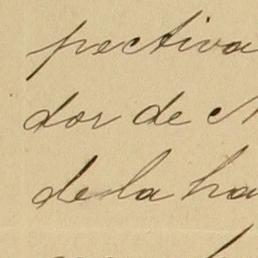 pectiva
dor de
de la ha